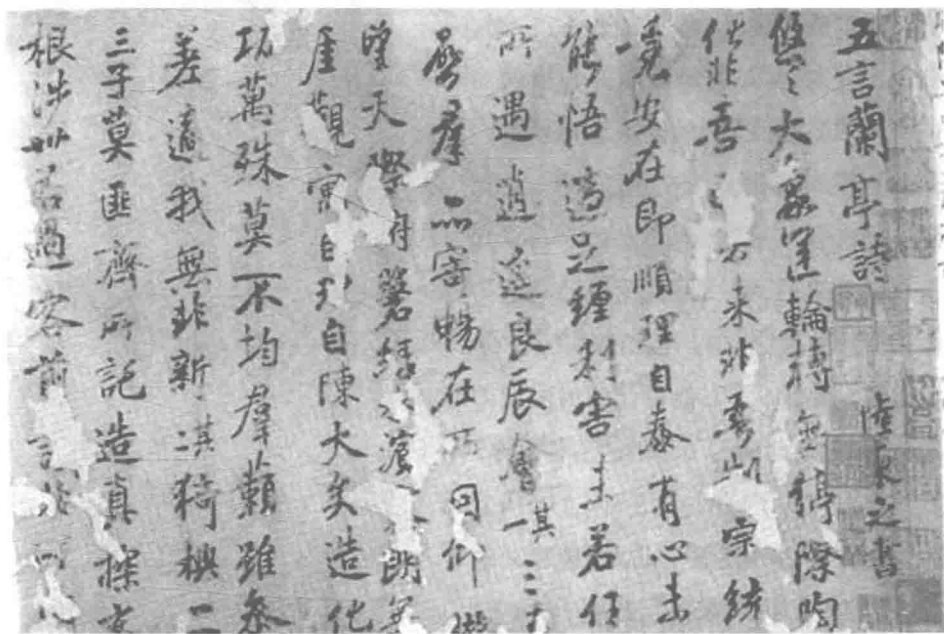 五言蘭亭詩 陸柬之書
悠々大象運輪轉無停際陶
化非吾 來非吾制宗統
竟安在即順理自泰有心未
能悟適足纏利害未若任
所遇逍遙良辰會其一三春
羣品寄暢在所因仰
望天際俯磐綠水濱 朗無
厓觀寓目理自陳大矣造化
功萬殊莫不均羣籟雖參
差適我無非新其二猗與二
三子莫匪齊所託造真探玄
根涉世若過客前